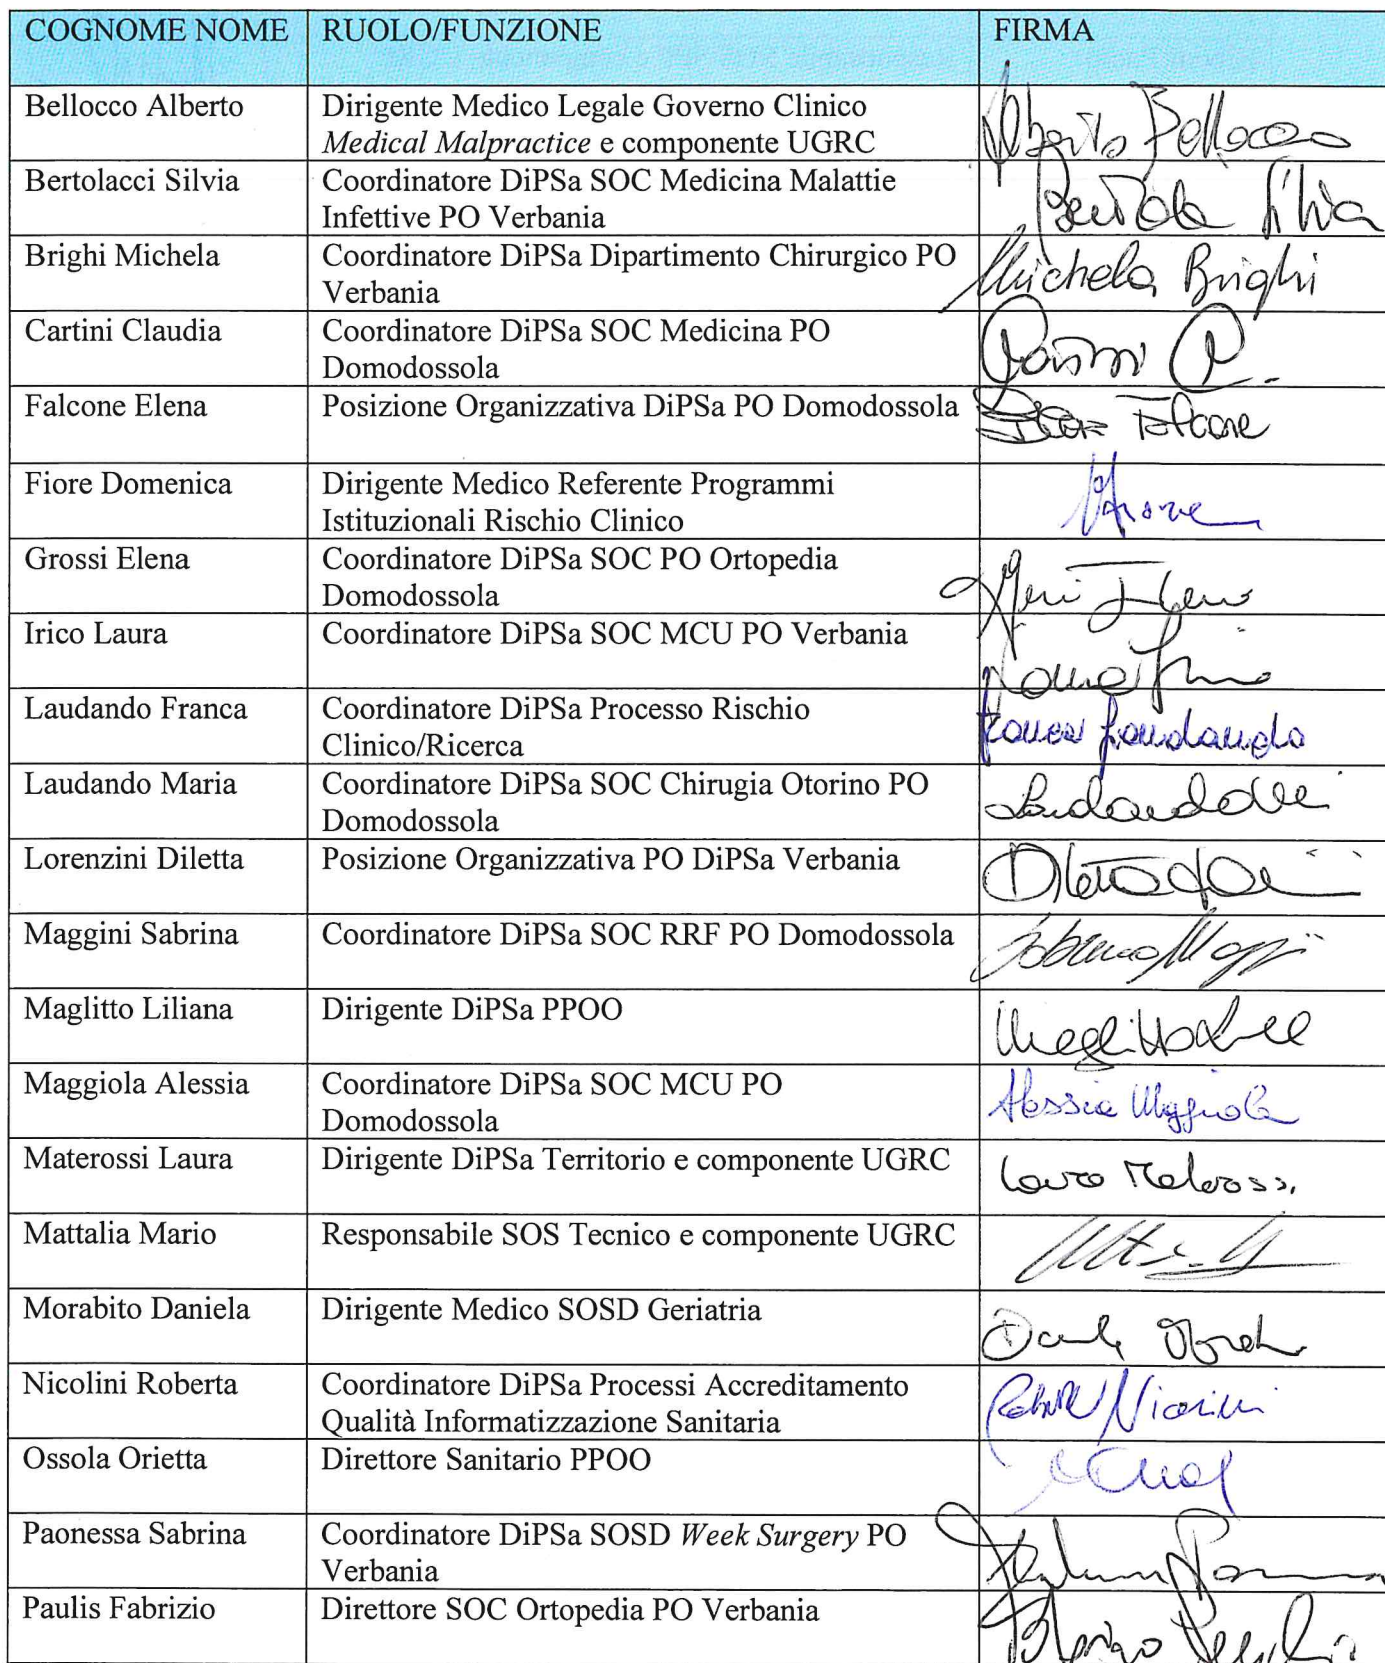 COGNOME NOME RUOLO/FUNZIONE FIRMA
Bellocco Alberto Dirigente Medico Legale Governo Clinico
Medical Malpractice e componente UGRC Alberto Bellocco
Bertolacci Silvia Coordinatore DiPSa SOC Medicina Malattie
Infettive PO Verbania Silvia
Brighi Michela Coordinatore DiPSa Dipartimento Chirurgico PO
Verbania Michela Brighi
Cartini Claudia Coordinatore DiPSa SOC Medicina PO
Domodossola
Falcone Elena Posizione Organizzativa DiPSa PO Domodossola Elena Falcone
Fiore Domenica Dirigente Medico Referente Programmi
Istituzionali Rischio Clinico
Grossi Elena Coordinatore DiPSa SOC PO Ortopedia
Domodossola
Irico Laura Coordinatore DiPSa SOC MCU PO Verbania
Laudando Franca Coordinatore DiPSa Processo Rischio
Clinico/Ricerca Franca Laudando
Laudando Maria Coordinatore DiPSa SOC Chirugia Otorino PO
Domodossola
Lorenzini Diletta Posizione Organizzativa PO DiPSa Verbania
Maggini Sabrina Coordinatore DiPSa SOC RRF PO Domodossola
Maglitto Liliana Dirigente DiPSa PPOO
Maggiola Alessia Coordinatore DiPSa SOC MCU PO
Domodossola Alessia Maggiola
Materossi Laura Dirigente DiPSa Territorio e componente UGRC Laura Materossi
Mattalia Mario Responsabile SOS Tecnico e componente UGRC
Morabito Daniela Dirigente Medico SOSD Geriatria
Nicolini Roberta Coordinatore DiPSa Processi Accreditamento
Qualità Informatizzazione Sanitaria Roberta Nicolini
Ossola Orietta Direttore Sanitario PPOO
Paonessa Sabrina Coordinatore DiPSa SOSD Week Surgery PO
Verbania
Paulis Fabrizio Direttore SOC Ortopedia PO Verbania